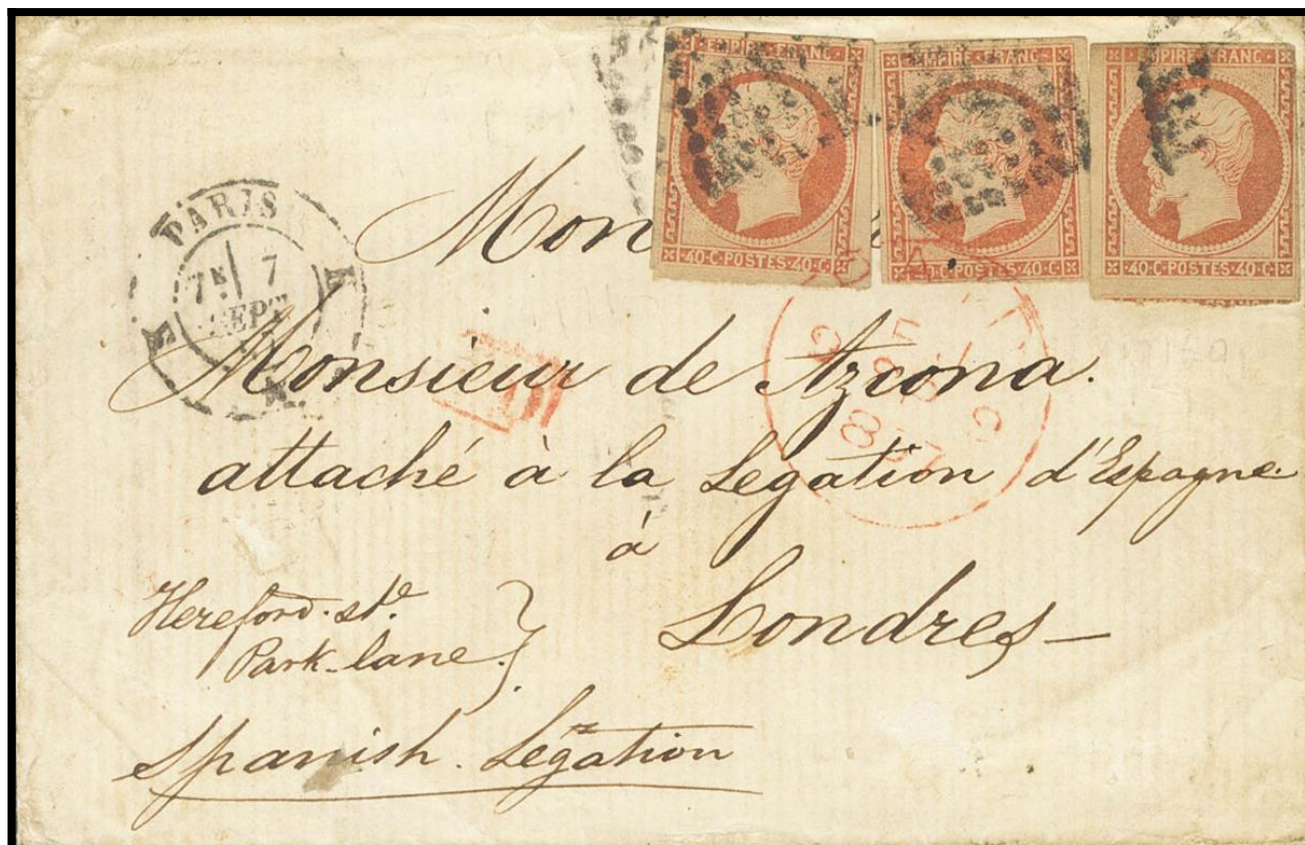 EMPIRE · FRANC · EMPIRE · FRANC · EMPIRE · FRANC ·
· 40 · C · POSTES · 40 · C · 40 · C · POSTES · 40 · C · 40 · C · POSTES · 40 · C ·
PARIS
7
SEPT
PD
Monsieur de Azcona.
attaché à la Legation d'Espagne
à
Londres —
Hereford. st.
Park-lane.
Spanish. Légation